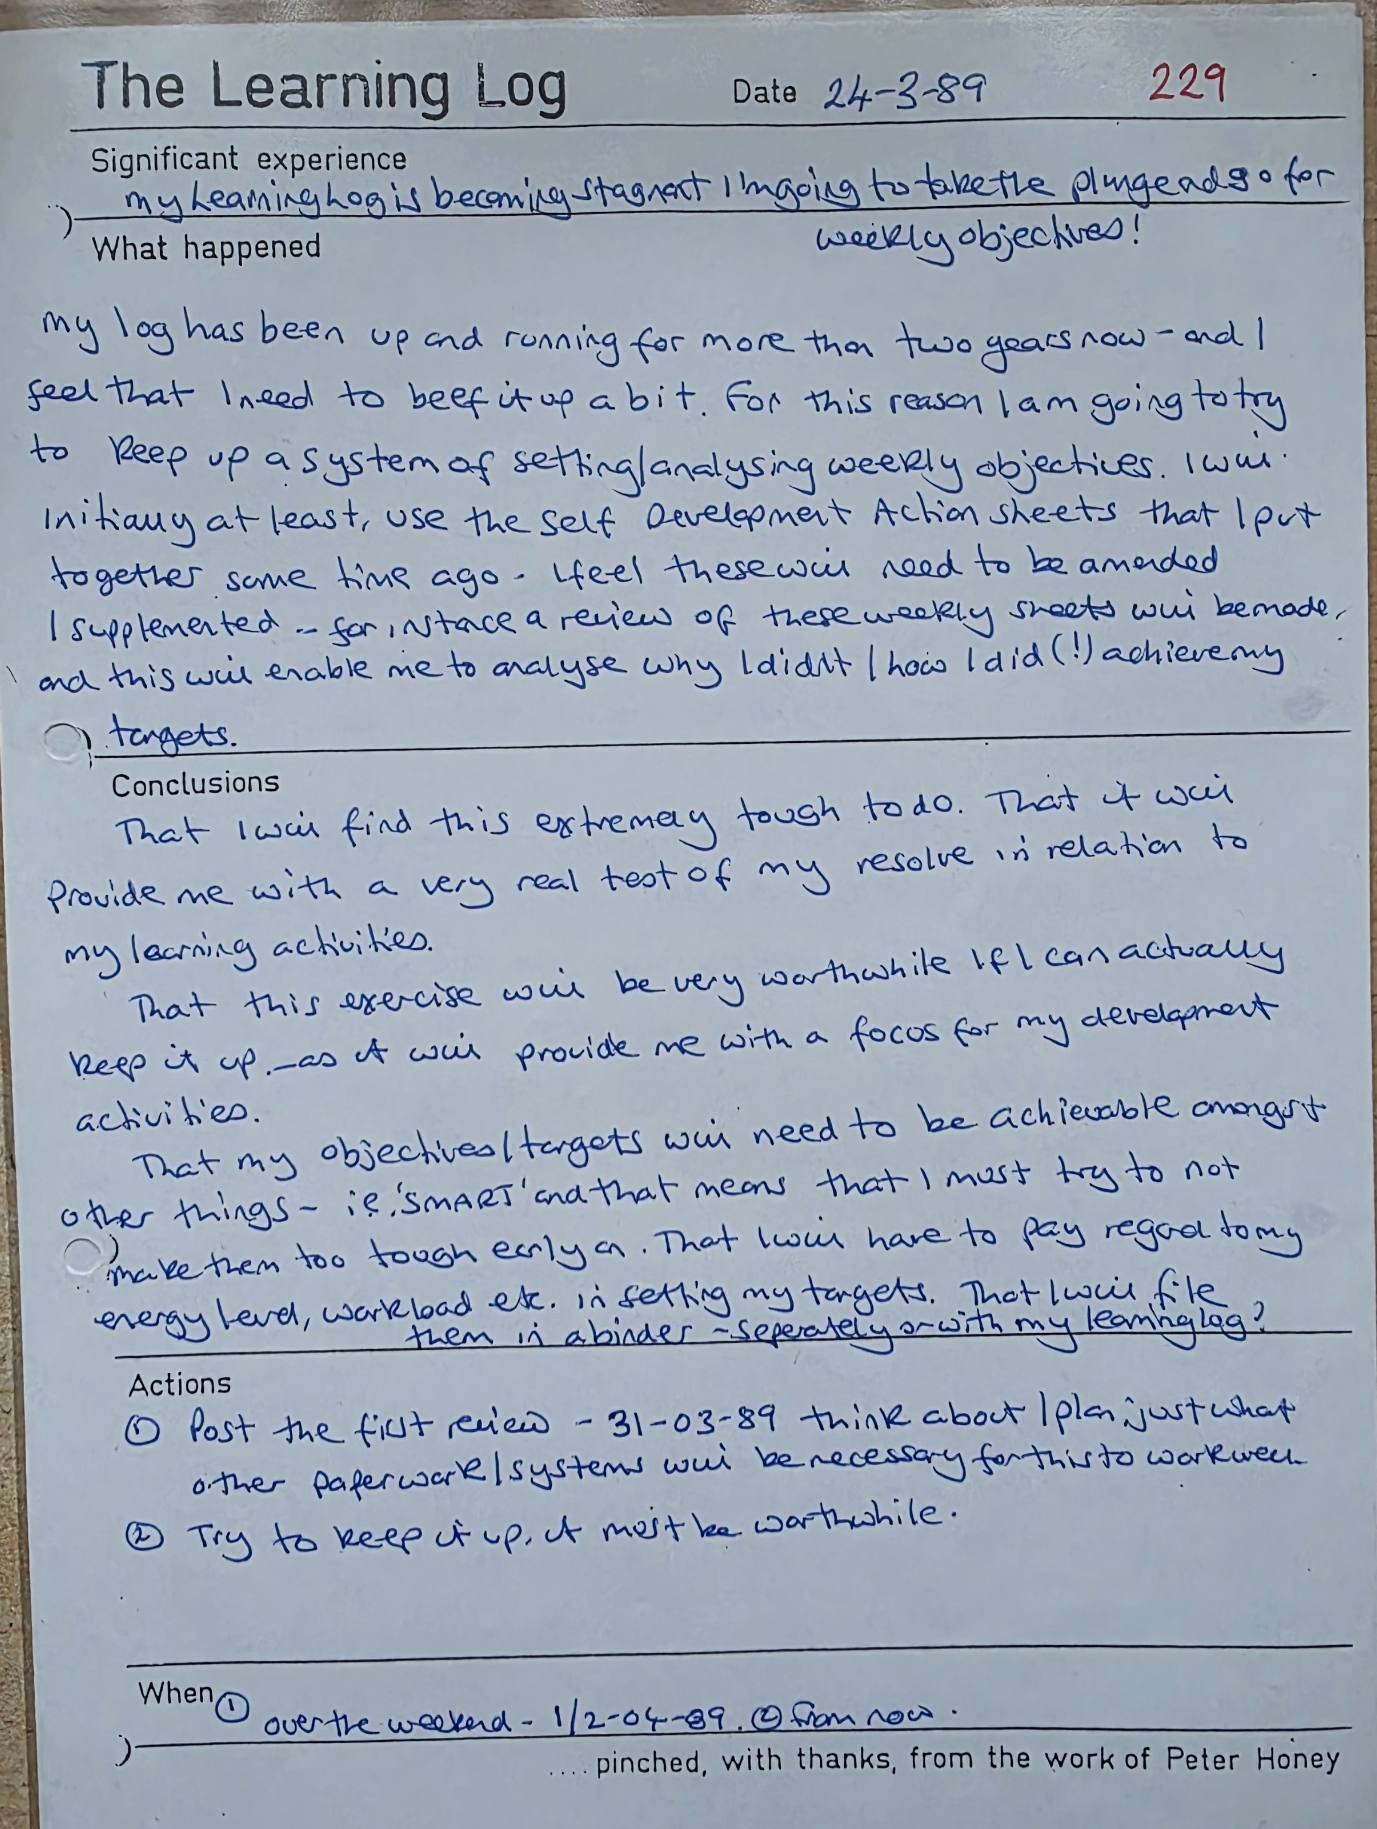 The Learning Log Date 24-3-89 229
Significant experience
my Learning Log is becoming stagnant I'm going to take the plunge and go for
weekly objectives!
What happened
My log has been up and running for more than two years now - and I
feel that I need to beef it up a bit. For this reason I am going to try
to keep up a system of setting/analysing weekly objectives. I will
initially at least, use the Self Development Action sheets that I put
together some time ago - I feel these will need to be amended
/ supplemented - for instance a review of these weekly sheets will be made,
and this will enable me to analyse why I didn't / how I did (!) achieve my
targets.
Conclusions
That I will find this extremely tough to do. That it will
provide me with a very real test of my resolve in relation to
my learning activities.
That this exercise will be very worthwhile if I can actually
keep it up. - as it will provide me with a focus for my development
activities.
That my objectives/targets will need to be achievable amongst
other things - ie. 'SMART' and that means that I must try to not
make them too tough early on. That I will have to pay regard to my
energy level, workload etc. in setting my targets. That I will file
them in a binder - seperately or with my learning log?
Actions
① Post the first review - 31-03-89 think about / plan just what
other paperwork/systems will be necessary for this to work well
② Try to keep it up, it must be worthwhile.
When ① over the weekend - 1/2-04-89. ② from now.
.... pinched, with thanks, from the work of Peter Honey